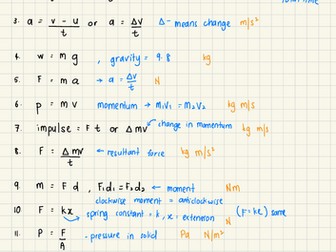 total time
3. a = v - u / t or a = Δv / t Δ - means change m/s²
4. w = m g , gravity = 9.8 kg
5. F = m a → a = Δv / t N
6. p = m v momentum → m₁v₁ = m₂v₂ kg m/s
7. impulse = F t or Δmv change in momentum kg m/s
8. F = Δmv / t ← resultant force kg m/s
9. m = F d , F₁d₁ = F₂d₂ ← moment Nm
clockwise moment = anticlockwise
10 F = kx spring constant = k, x = extension N (F = ke) same
11. P = F / A - pressure in solid Pa N/m²